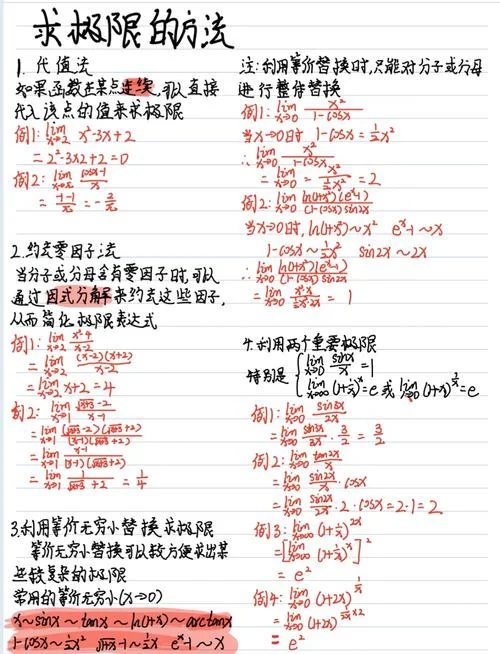 求极限的方法
1. 代值法
如果函数在某点连续,可以直接
代入该点的值来求极限
例1: lim x→2 x²-3x+2
= 2²-3×2+2=0
例2: lim x→π (cosx-1)/x
= (-1-1)/π = -2/π
2.约去零因子法
当分子或分母含有零因子时,可以
通过因式分解来约去这些因子,
从而简化极限表达式
例1: lim x→2 (x²-4)/(x-2)
= lim x→2 (x-2)(x+2)/(x-2)
= lim x→2 x+2 = 4
例2: lim x→1 (√(x+3)-2)/(x-1)
= lim x→1 (√(x+3)-2)(√(x+3)+2)/((x-1)(√(x+3)+2))
= lim x→1 (x-1)/((x-1)(√(x+3)+2))
= lim x→1 1/(√(x+3)+2) = 1/4
3.利用等价无穷小替换求极限
等价无穷小替换可以较方便求出某
些较复杂的极限
常用的等价无穷小(x→0)
x~sinx~tanx~ln(1+x)~arctanx
1-cosx~½x² √(x+1)-1~½x eˣ-1~x
注:利用等价替换时,只能对分子或分母
进行整体替换
例1: lim x→0 x²/(1-cosx)
当x→0时 1-cosx=½x²
∴ lim x→0 x²/(1-cosx)
= lim x→0 x²/(½x²) = 2
例2: lim x→0 ln(1+x²)(eˣ-1)/((1-cosx)sin2x)
当x→0时, ln(1+x²)~x² eˣ-1~x
1-cosx~½x² sin2x~2x
∴ lim x→0 ln(1+x²)(eˣ-1)/((1-cosx)sin2x)
= lim x→0 x²·x/(½x²·2x) = 1
4.利用两个重要极限
特别是 { lim x→0 sinx/x = 1
lim x→∞ (1+1/x)ˣ=e 或 lim x→0 (1+x)^(1/x)=e
例1: lim x→0 sin3x/2x
= lim x→0 sin3x/3x · 3/2 = 3/2
例2: lim x→0 tan2x/x
= lim x→0 sin2x/x · cosx
= lim x→0 sin2x/2x · 2 · cosx=2·1=2
例3: lim x→∞ (1+1/x)^(2x)
= [lim x→∞ (1+1/x)ˣ]²
= e²
例4: lim x→0 (1+2x)^(1/x)
= lim x→0 (1+2x)^(1/2x ×2)
= e²